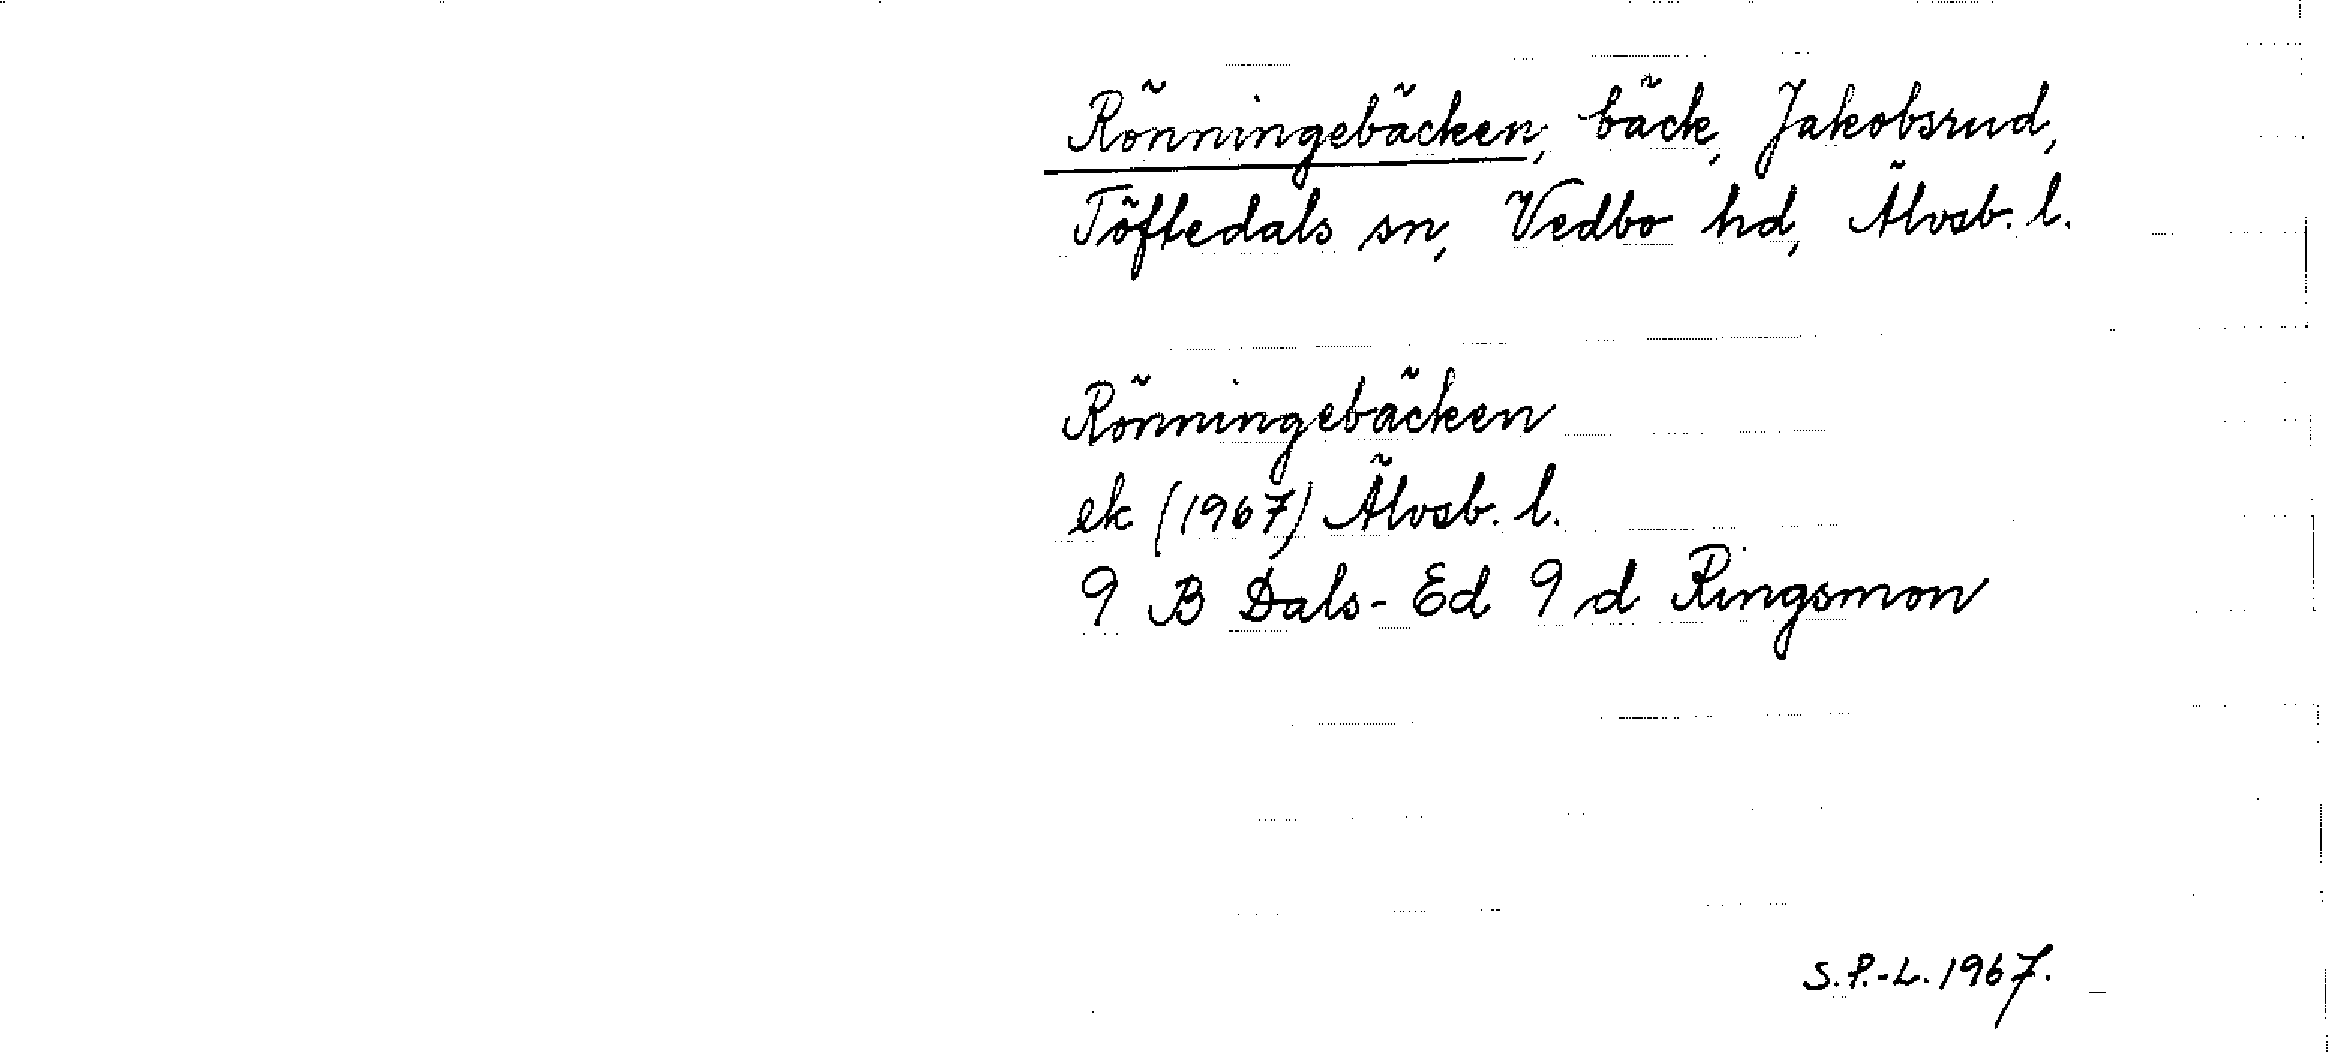 Rönningebäcken, bäck, Jakobsrud,
Töftedals sn, Vedbo hd, Älvsb. l.
Rönningebäcken
ek (1967) Älvsb. l.
9 B Dals-Ed 9 d Ringsmon
S.P.-L. 1967.